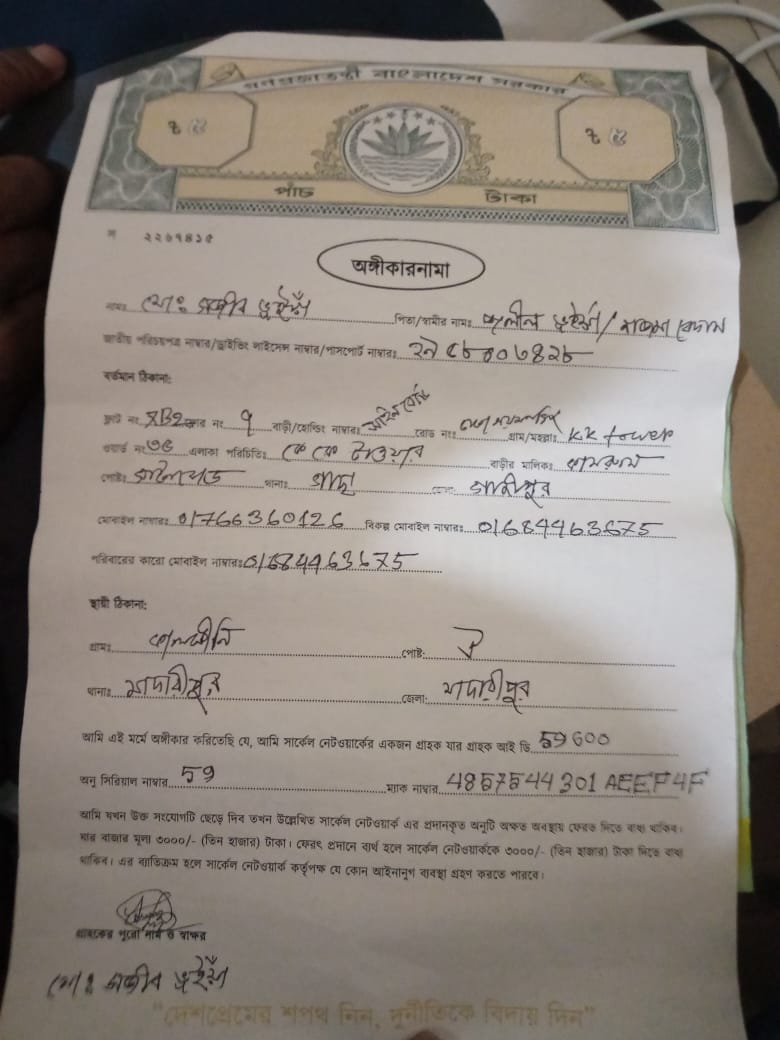 গণপ্রজাতন্ত্রী বাংলাদেশ সরকার
৳ ৫ ৳ ৫
পাঁচ টাকা
২২৬৭৪১৫
অঙ্গীকারনামা
নামঃ মোঃ সজীব ভূইয়াঁ পিতা/স্বামীর নামঃ জলীল ভূইয়াঁ/
জাতীয় পরিচয়পত্র নাম্বার/ড্রাইভিং লাইসেন্স নাম্বার/পাসপোর্ট নাম্বারঃ
বর্তমান ঠিকানা:
ফ্লাট নং ৭ বাড়ী/হোল্ডিং নাম্বারঃ রোড নংঃ গ্রাম/মহল্লাঃ KK tower
ওয়ার্ড নং ৩৫ এলাকা পরিচিতিঃ কে কে টাওয়ার বাড়ীর মালিকঃ কামরুল
পোষ্টঃ থানাঃ গাছা গাজীপুর
মোবাইল নাম্বারঃ 01766360126 বিকল্প মোবাইল নাম্বারঃ 01684463675
পরিবারের কারো মোবাইল নাম্বারঃ 01684463675
স্থায়ী ঠিকানা:
গ্রামঃ পোষ্ট: ঐ
থানাঃ মাদারীপুর জেলা: মাদারীপুর
আমি এই মর্মে অঙ্গীকার করিতেছি যে, আমি সার্কেল নেটওয়ার্কের একজন গ্রাহক যার গ্রাহক আই ডি 59600
অনু সিরিয়াল নাম্বার 59 ম্যাক নাম্বার 4857544301AEEF4F
আমি যখন উক্ত সংযোগটি ছেড়ে দিব তখন উল্লেখিত সার্কেল নেটওয়ার্ক এর প্রদানকৃত অনুটি অক্ষত অবস্থায় ফেরত দিতে বাধ্য থাকিব।
যার বাজার মূল্য ৩০০০/- (তিন হাজার) টাকা। ফেরৎ প্রদানে ব্যর্থ হলে সার্কেল নেটওয়ার্ককে ৩০০০/- (তিন হাজার) টাকা দিতে বাধ্য
থাকিব। এর ব্যতিক্রম হলে সার্কেল নেটওয়ার্ক কর্তৃপক্ষ যে কোন আইনানুগ ব্যবস্থা গ্রহণ করতে পারবে।
গ্রাহকের পুরো নাম ও স্বাক্ষর
মোঃ সজীব ভূইয়াঁ
"দেশপ্রেমের শপথ নিন, দুর্নীতিকে বিদায় দিন"